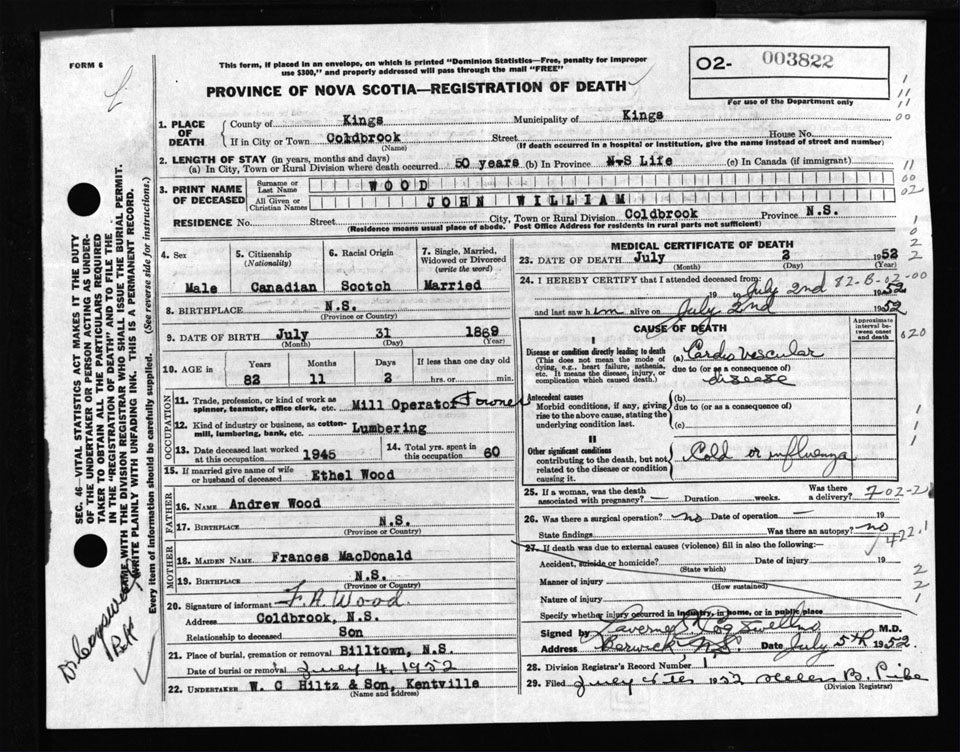 FORM 6
This form, if placed in an envelope, on which is printed "Dominion Statistics—Free, penalty for improper
use $300," and properly addressed will pass through the mail "FREE"
PROVINCE OF NOVA SCOTIA—REGISTRATION OF DEATH
O2- 003822
For use of the Department only
1. PLACE OF DEATH
County of Kings Municipality of Kings
If in City or Town Coldbrook Street House No.
(Name) (If death occurred in a hospital or institution, give the name instead of street and number)
2. LENGTH OF STAY (in years, months and days)
(a) In City, Town or Rural Division where death occurred 50 years (b) In Province N-S Life (c) In Canada (if immigrant)
3. PRINT NAME OF DECEASED
Surname or Last Name WOOD
All Given or Christian Names JOHN WILLIAM
RESIDENCE No. Street City, Town or Rural Division Coldbrook Province N.S.
(Residence means usual place of abode. Post Office Address for residents in rural parts not sufficient)
4. Sex
Male
5. Citizenship
(Nationality)
Canadian
6. Racial Origin
Scotch
7. Single, Married,
Widowed or Divorced
(write the word)
Married
8. BIRTHPLACE N.S.
(Province or Country)
9. DATE OF BIRTH July 31 1869
(Month) (Day) (Year)
10. AGE in
Years Months Days If less than one day old
82 11 2 hrs. or min.
OCCUPATION
11. Trade, profession, or kind of work as
spinner, teamster, office clerk, etc. Mill Operator
12. Kind of industry or business, as cotton-
mill, lumbering, bank, etc. Lumbering
13. Date deceased last worked
at this occupation 1945
14. Total yrs. spent in
this occupation 60
15. If married give name of wife
or husband of deceased Ethel Wood
FATHER
16. Name Andrew Wood
17. Birthplace N.S.
(Province or Country)
MOTHER
18. Maiden Name Frances MacDonald
19. Birthplace N.S.
(Province or Country)
20. Signature of informant F.A. Wood
Address Coldbrook, N.S.
Relationship to deceased Son
21. Place of burial, cremation or removal Billtown, N.S.
Date of burial or removal July 4, 1952
22. Undertaker W. C Hiltz & Son, Kentville
(Name and address)
MEDICAL CERTIFICATE OF DEATH
23. DATE OF DEATH July 2 1952
(Month) (Day) (Year)
24. I HEREBY CERTIFY that I attended deceased from:
19 to July 2nd 1952
82-B-2-00
and last saw him alive on July 2nd 1952
CAUSE OF DEATH
Approximate interval between onset and death
I
Disease or condition directly leading to death
(This does not mean the mode of
dying, e.g., heart failure, asthenia,
etc. It means the disease, injury, or
complication which caused death.)
(a) Cardio Vascular
due to (or as a consequence of)
disease
Antecedent causes
Morbid conditions, if any, giving
rise to the above cause, stating the
underlying condition last.
(b)
due to (or as a consequence of)
(c)
II
Other significant conditions
contributing to the death, but not
related to the disease or condition
causing it.
Cold or influenza
25. If a woman, was the death
associated with pregnancy? — Duration weeks. Was there a delivery?
702-2
26. Was there a surgical operation? no Date of operation — 19
State findings Was there an autopsy? no
422.1
27. If death was due to external causes (violence) fill in also the following:—
Accident, suicide or homicide? Date of injury 19
(State which)
Manner of injury
(How sustained)
Nature of injury
Specify whether injury occurred in industry, in home, or in public place
Signed by M.D.
Address Berwick, N.S. Date July 5th 1952.
28. Division Registrar's Record Number 1
29. Filed July 4th 1952 Helen B.
(Division Registrar)
SEC. 46—VITAL STATISTICS ACT MAKES IT THE DUTY
OF THE UNDERTAKER OR PERSON ACTING AS UNDER-
TAKER TO OBTAIN ALL THE PARTICULARS REQUIRED
IN THE "REGISTRATION OF DEATH" AND TO FILE THE
SAME WITH THE DIVISION REGISTRAR WHO SHALL ISSUE THE BURIAL PERMIT.
WRITE PLAINLY WITH UNFADING INK. THIS IS A PERMANENT RECORD.
Every item of information should be carefully supplied. (See reverse side for instructions.)